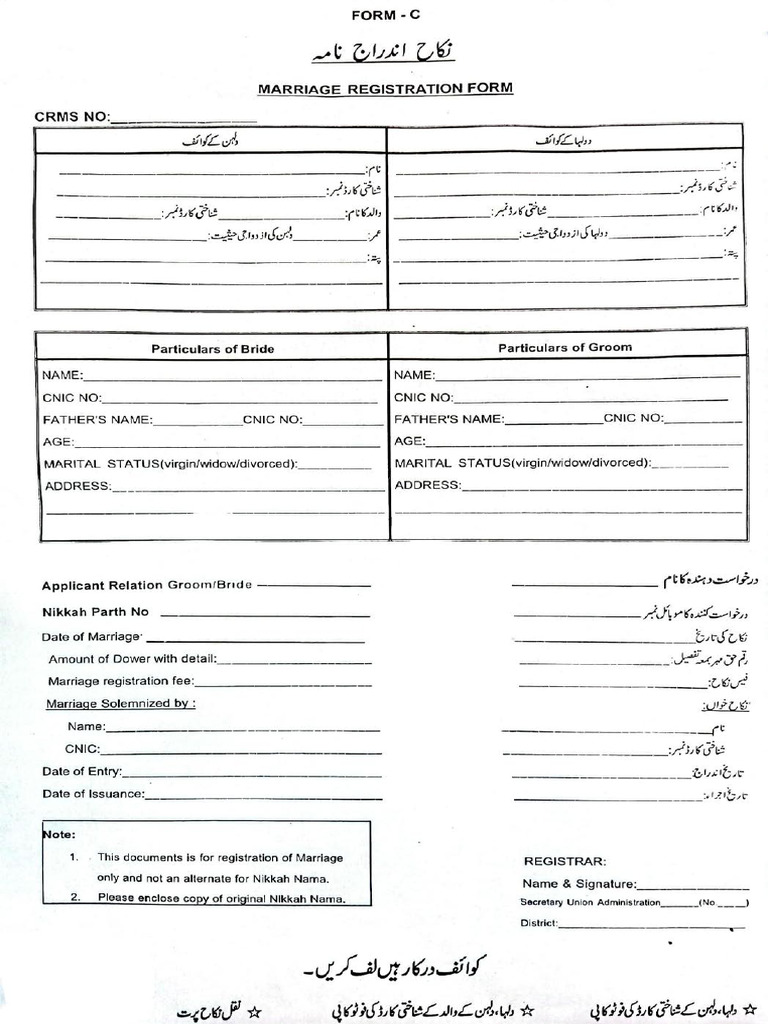 FORM - C
نکاح اندراج نامہ
MARRIAGE REGISTRATION FORM
CRMS NO:
دولہا کے کوائف
نام:
شناختی کارڈ نمبر:
والد کا نام: شناختی کارڈ نمبر:
عمر: دولہا کی ازدواجی حیثیت:
پتہ:
دلہن کے کوائف
نام:
شناختی کارڈ نمبر:
والد کا نام: شناختی کارڈ نمبر:
عمر: دلہن کی ازدواجی حیثیت:
پتہ:
Particulars of Bride
NAME:
CNIC NO:
FATHER'S NAME: CNIC NO:
AGE:
MARITAL STATUS(virgin/widow/divorced):
ADDRESS:
Particulars of Groom
NAME:
CNIC NO:
FATHER'S NAME: CNIC NO:
AGE:
MARITAL STATUS(virgin/widow/divorced):
ADDRESS:
Applicant Relation Groom/Bride
درخواست دہندہ کا نام
Nikkah Parth No
درخواست کنندہ کا موبائل نمبر
Date of Marriage:
نکاح کی تاریخ
Amount of Dower with detail:
رقم حق مہر بمعہ تفصیل:
Marriage registration fee:
فیس نکاح:
Marriage Solemnized by :
نکاح خواں:
Name:
نام
CNIC:
شناختی کارڈ نمبر:
Date of Entry:
تاریخ اندراج:
Date of Issuance:
تاریخ اجراء:
Note:
1. This documents is for registration of Marriage
only and not an alternate for Nikkah Nama.
2. Please enclose copy of original Nikkah Nama.
REGISTRAR:
Name & Signature:
Secretary Union Administration (No )
District:
کوائف درکار ہیں لف کریں۔
☆ دلہا، دلہن کے شناختی کارڈ کی فوٹو کاپی ☆ دلہا، دلہن کے والد کے شناختی کارڈ کی فوٹو کاپی ☆ نقل نکاح پرت